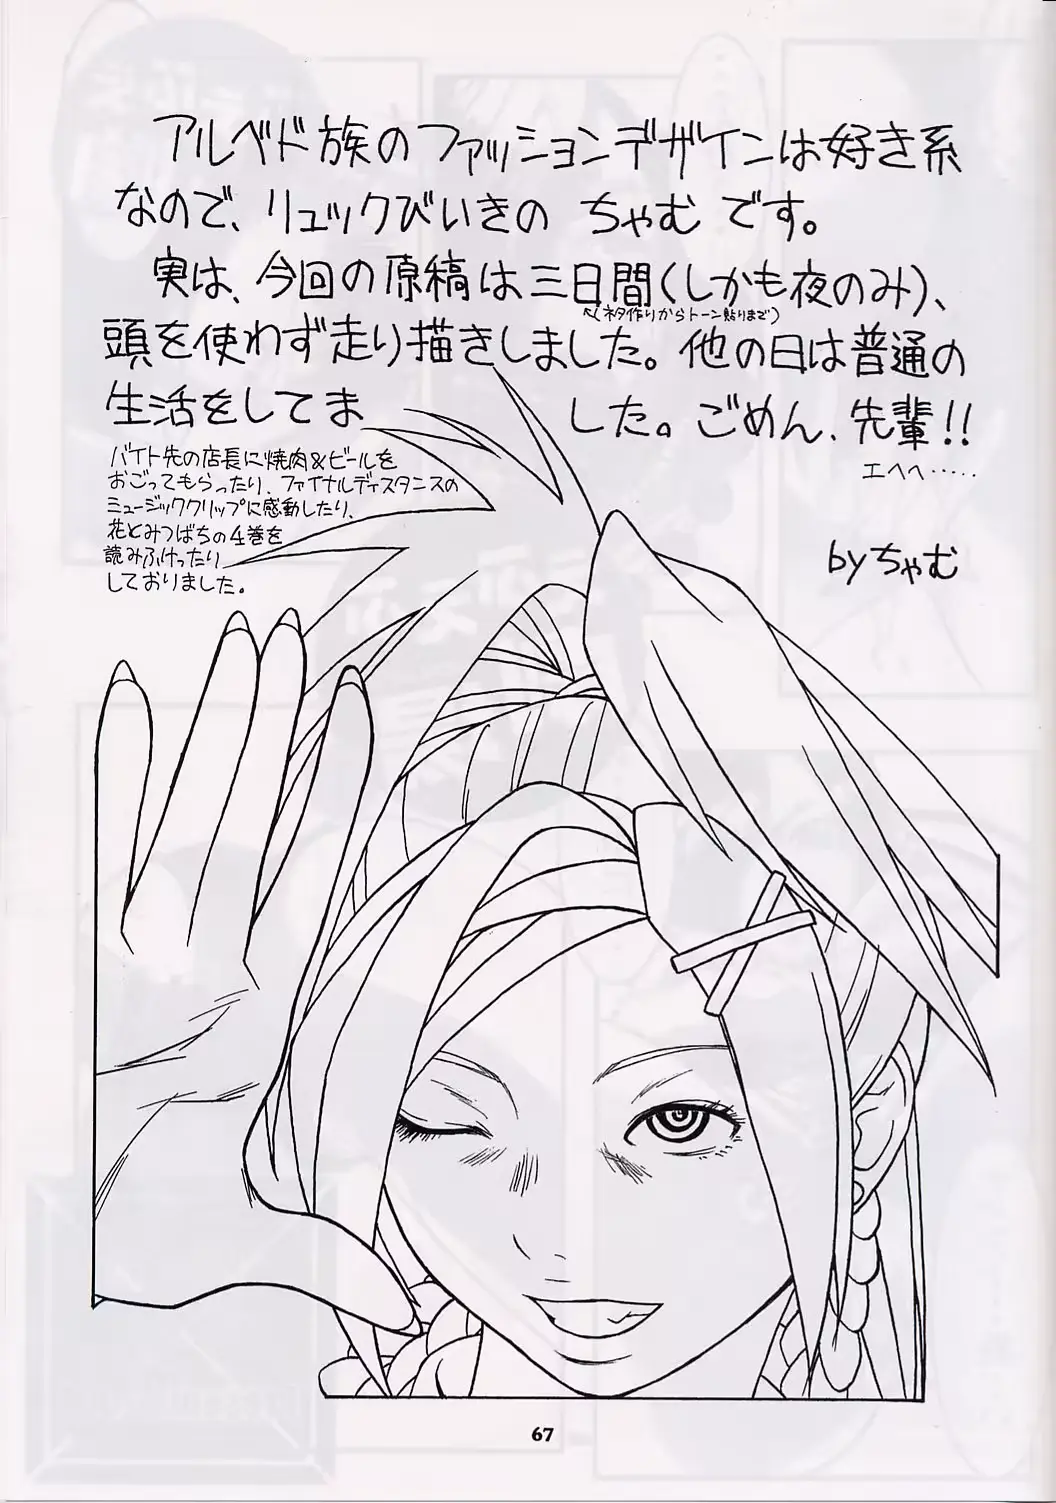 アルベド族のファッションデザインは好き系
なので、リュックびいきの ちゃむ です。
実は、今回の原稿は三日間(しかも夜のみ)、
↖(ネタ作りからトーン貼りまで)
頭を使わず走り描きしました。他の日は普通の
生活をしてま した。ごめん、先輩!!
エヘヘ・・・・・
バイト先の店長に焼肉&ビールを
おごってもらったり、ファイナルディスタンスの
ミュージッククリップに感動したり、
花とみつばちの4巻を
読みふけったり
しておりました。
byちゃむ
67